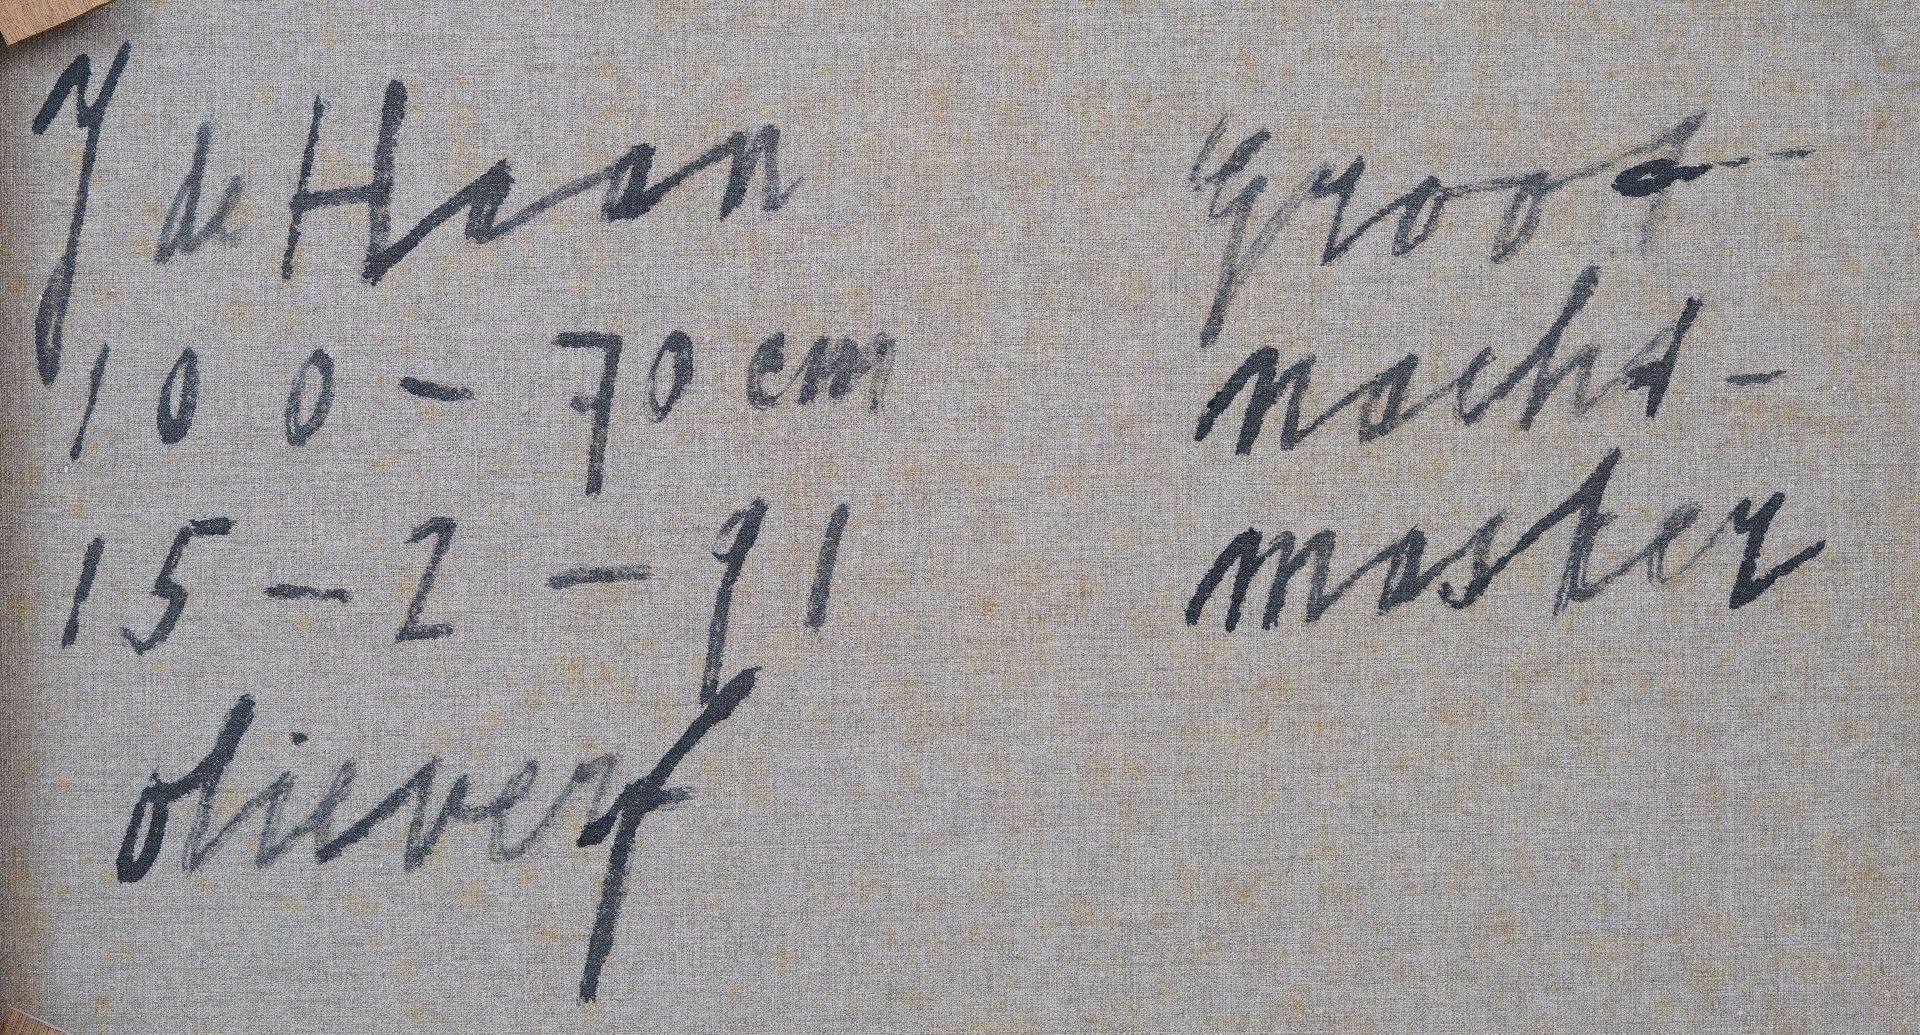 J de Haan
100 - 70 cm
15 - 2 - 91
olieverf
Groot -
nacht -
masker